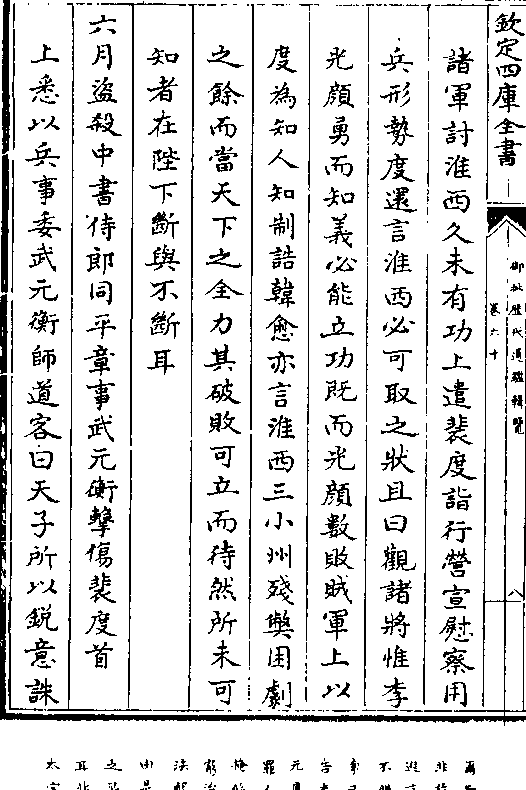 欽定四庫全書
御批歷代通鑑輯覽
卷六十
八
諸軍討淮西久未有功上遣裴度詣行營宣慰察用
兵形勢度還言淮西必可取之狀且曰觀諸將惟李
光顔勇而知義必能立功既而光顔數敗賊軍上以
度為知人知制誥韓愈亦言淮西三小州殘獘困劇
之餘而當天下之全力其破敗可立而待然所未可
知者在陛下斷與不斷耳
六月盜殺中書侍郎同平章事武元衡擊傷裴度首
上悉以兵事委武元衡師道客曰天子所以鋭意誅